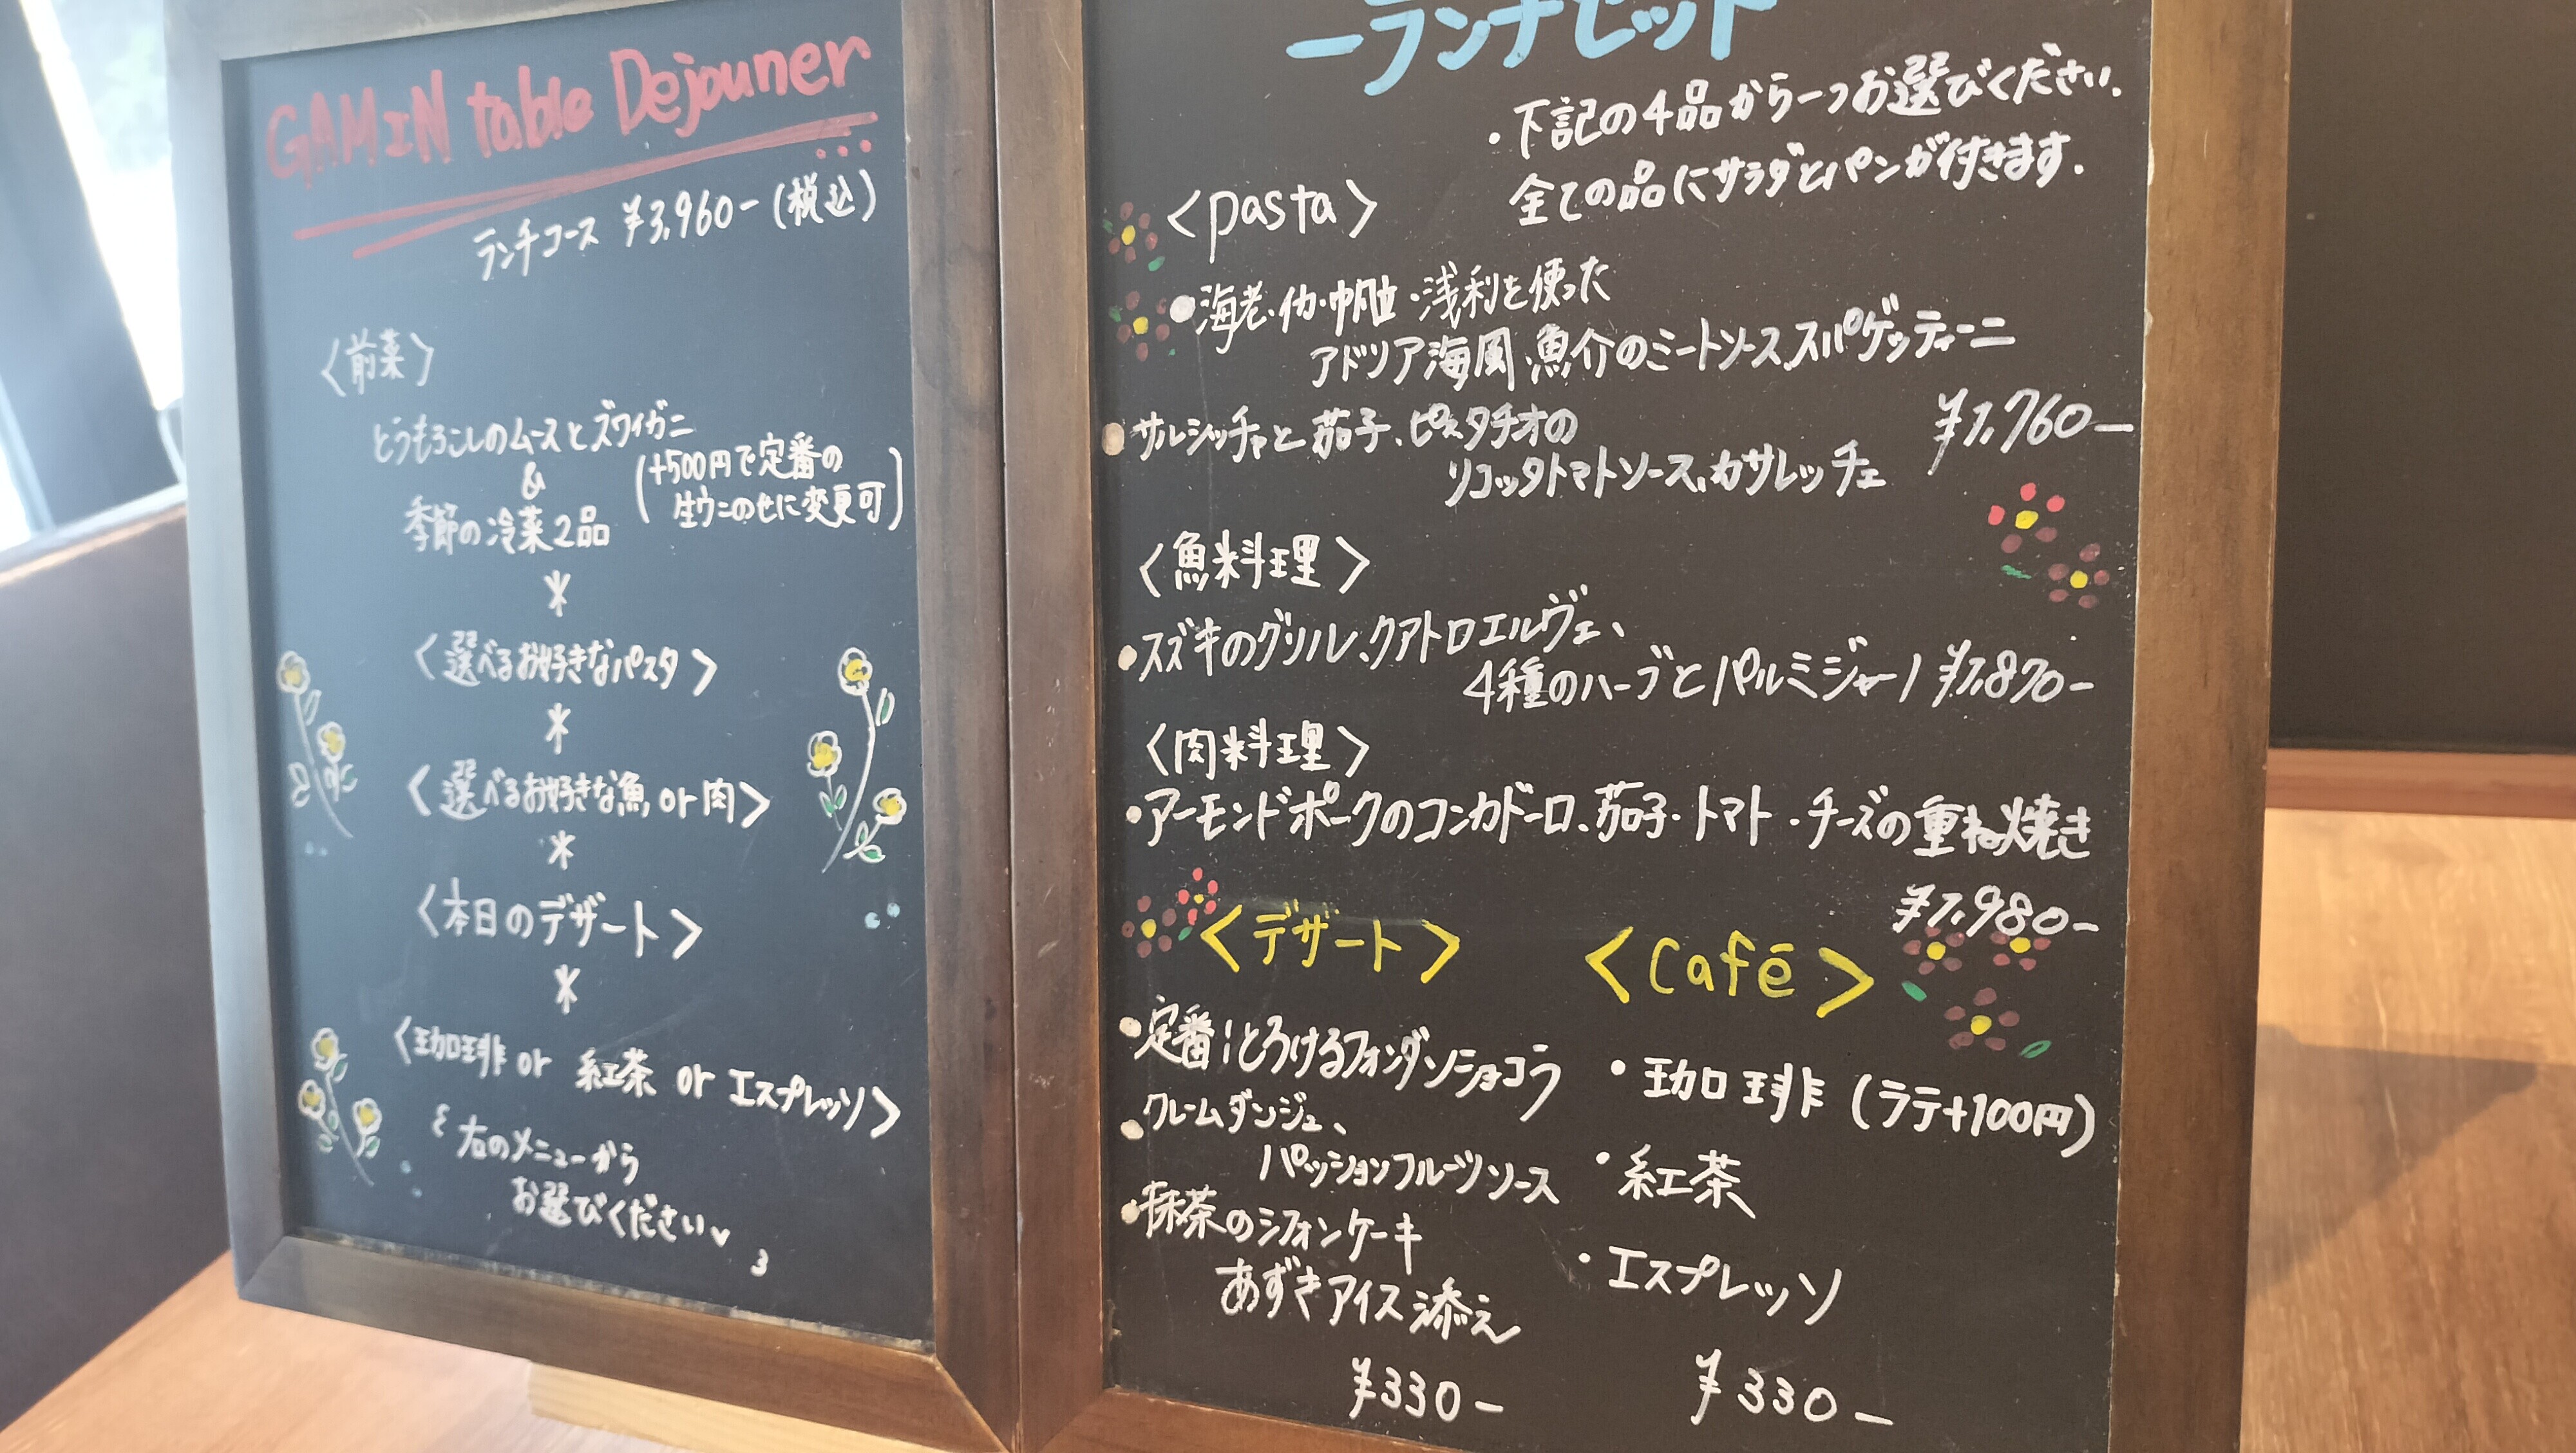 GAMIN table Dejouner
ランチコース ¥3,960-(税込)
〈前菜〉
とうもろこしのムースとズワイガニ
&
季節の冷菜2品
(+500円で定番の
生ウニのせに変更可)
*
〈選べるお好きなパスタ〉
*
〈選べるお好きな魚or肉〉
*
〈本日のデザート〉
*
〈珈琲 or 紅茶 or エスプレッソ〉
右のメニューから
お選びください
ーランチセット
・下記の4品から一つお選びください.
全ての品にサラダとパンが付きます.
〈pasta〉
●海老・イカ・帆立・浅利を使った
アドリア海風、魚介のミートソース、スパゲッティーニ
●サルシッチャと茄子、ピスタチオの
リコッタトマトソース、カサレッチェ
¥1,760-
〈魚料理〉
●スズキのグリル、クアトロエルヴェ、
4種のハーブとパルミジャーノ ¥1,870-
〈肉料理〉
●アーモンドポークのコンカドーロ、茄子・トマト・チーズの重ね焼き
¥1,980-
〈デザート〉
●定番!とろけるフォンダンショコラ
●クレームダンジュ、
パッションフルーツソース
●抹茶のシフォンケーキ
あずきアイス添え
¥330-
〈Café〉
・珈琲(ラテ+100円)
・紅茶
・エスプレッソ
¥330-